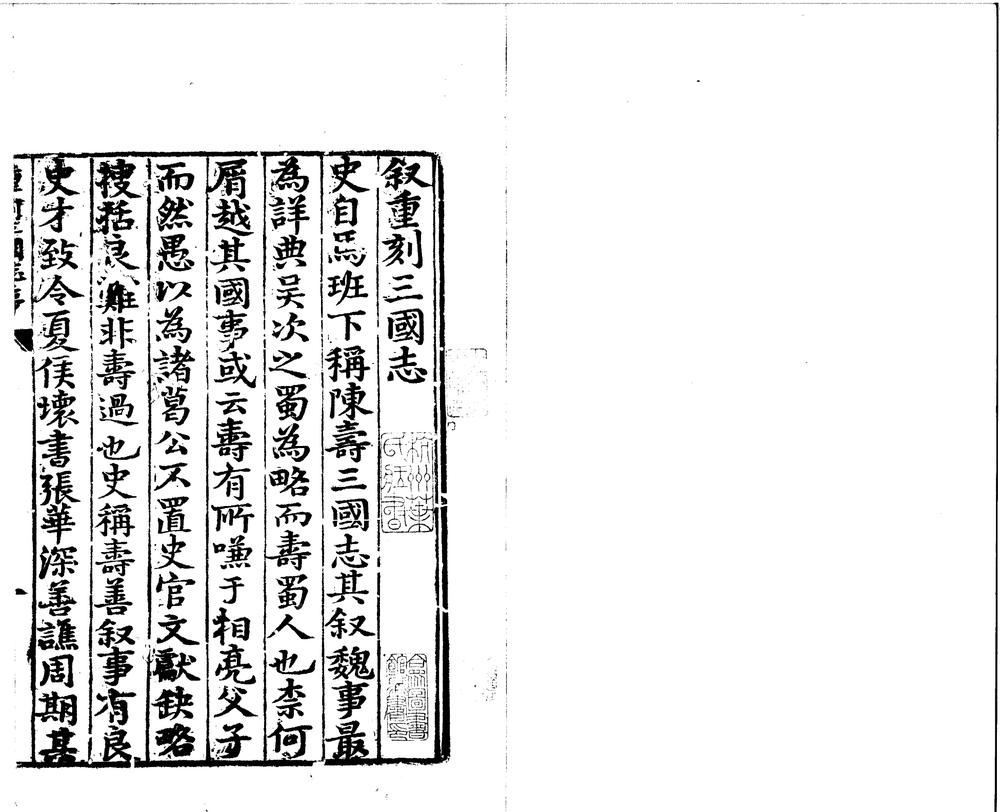 叙重刻三國志
杭州葉氏藏書
史自馬班下稱陳壽三國志其叙魏事最
為詳典吳次之蜀為略而壽蜀人也柰何
屑越其國事或云壽有所嗛于相亮父子
而然愚以為諸葛公不置史官文獻缺略
捜括良難非壽過也史稱壽善叙事有良
史才致令夏侯壞書張華深善譙周期甚